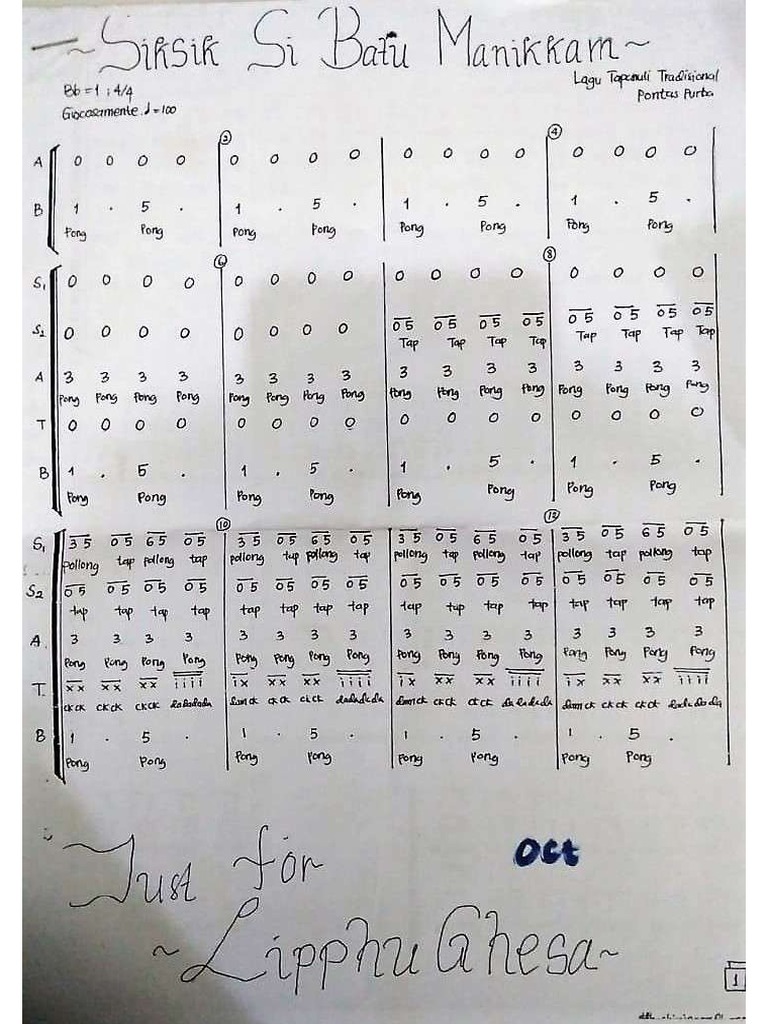 ~Siksik Si Batu Manikkam~
Bb = 1 ; 4/4
Lagu Tapanuli Tradisional
Giocosamente. ♩ = 100
Pontas Purba
② ④
A 0 0 0 0 | 0 0 0 0 | 0 0 0 0 | 0 0 0 0
B 1 . 5 . | 1 . 5 . | 1 . 5 . | 1 . 5 .
Pong Pong Pong Pong Pong Pong Pong Pong
⑥ ⑧
S1 0 0 0 0 | 0 0 0 0 | 0 0 0 0 | 0 0 0 0
S2 0 0 0 0 | 0 0 0 0 | 05 05 05 05 | 05 05 05 05
Tap Tap Tap Tap Tap Tap Tap Tap
A 3 3 3 3 | 3 3 3 3 | 3 3 3 3 | 3 3 3 3
Pong Pong Pong Pong Pong Pong Pong Pong Pong Pong Pong Pong Pong Pong Pong Pong
T 0 0 0 0 | 0 0 0 0 | 0 0 0 0 | 0 0 0 0
B 1 . 5 . | 1 . 5 . | 1 . 5 . | 1 . 5 .
Pong Pong Pong Pong Pong Pong Pong Pong
⑩ ⑫
S1 35 05 65 05 | 35 05 65 05 | 35 05 65 05 | 35 05 65 05
pollong tap pollong tap pollong tap pollong tap pollong tap pollong tap pollong tap pollong tap
S2 05 05 05 05 | 05 05 05 05 | 05 05 05 05 | 05 05 05 05
tap tap tap tap tap tap tap tap tap tap tap tap tap tap tap tap
A. 3 3 3 3 | 3 3 3 3 | 3 3 3 3 | 3 3 3 3
Pong Pong Pong Pong Pong Pong Pong Pong Pong Pong Pong Pong Pong Pong Pong Pong
T. xx xx xx iiii | ix xx xx iiii | ix xx xx iiii | ix xx xx iiii
ckck ckck ckck dadadada damck ckck ckck dadadada damck ckck ckck dadadada damck ckck ckck dadadada
B 1 . 5 . | 1 . 5 . | 1 . 5 . | 1 . 5 .
Pong Pong Pong Pong Pong Pong Pong Pong
Just for
Oct
~Lipphu Ghesa~
1